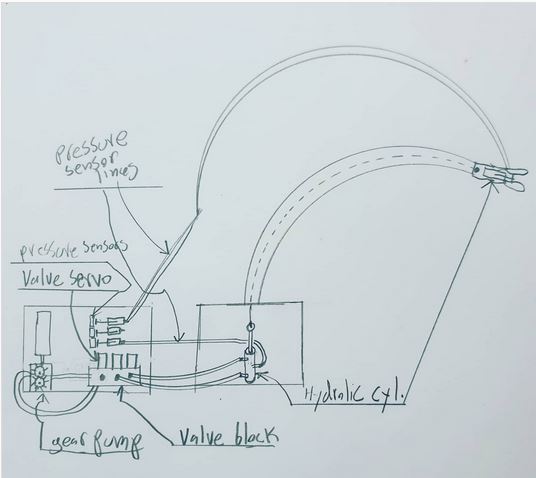 pressure
sensor
lines
pressure sensors
Valve servo
Hydralic cyl.
gear pump
Valve block